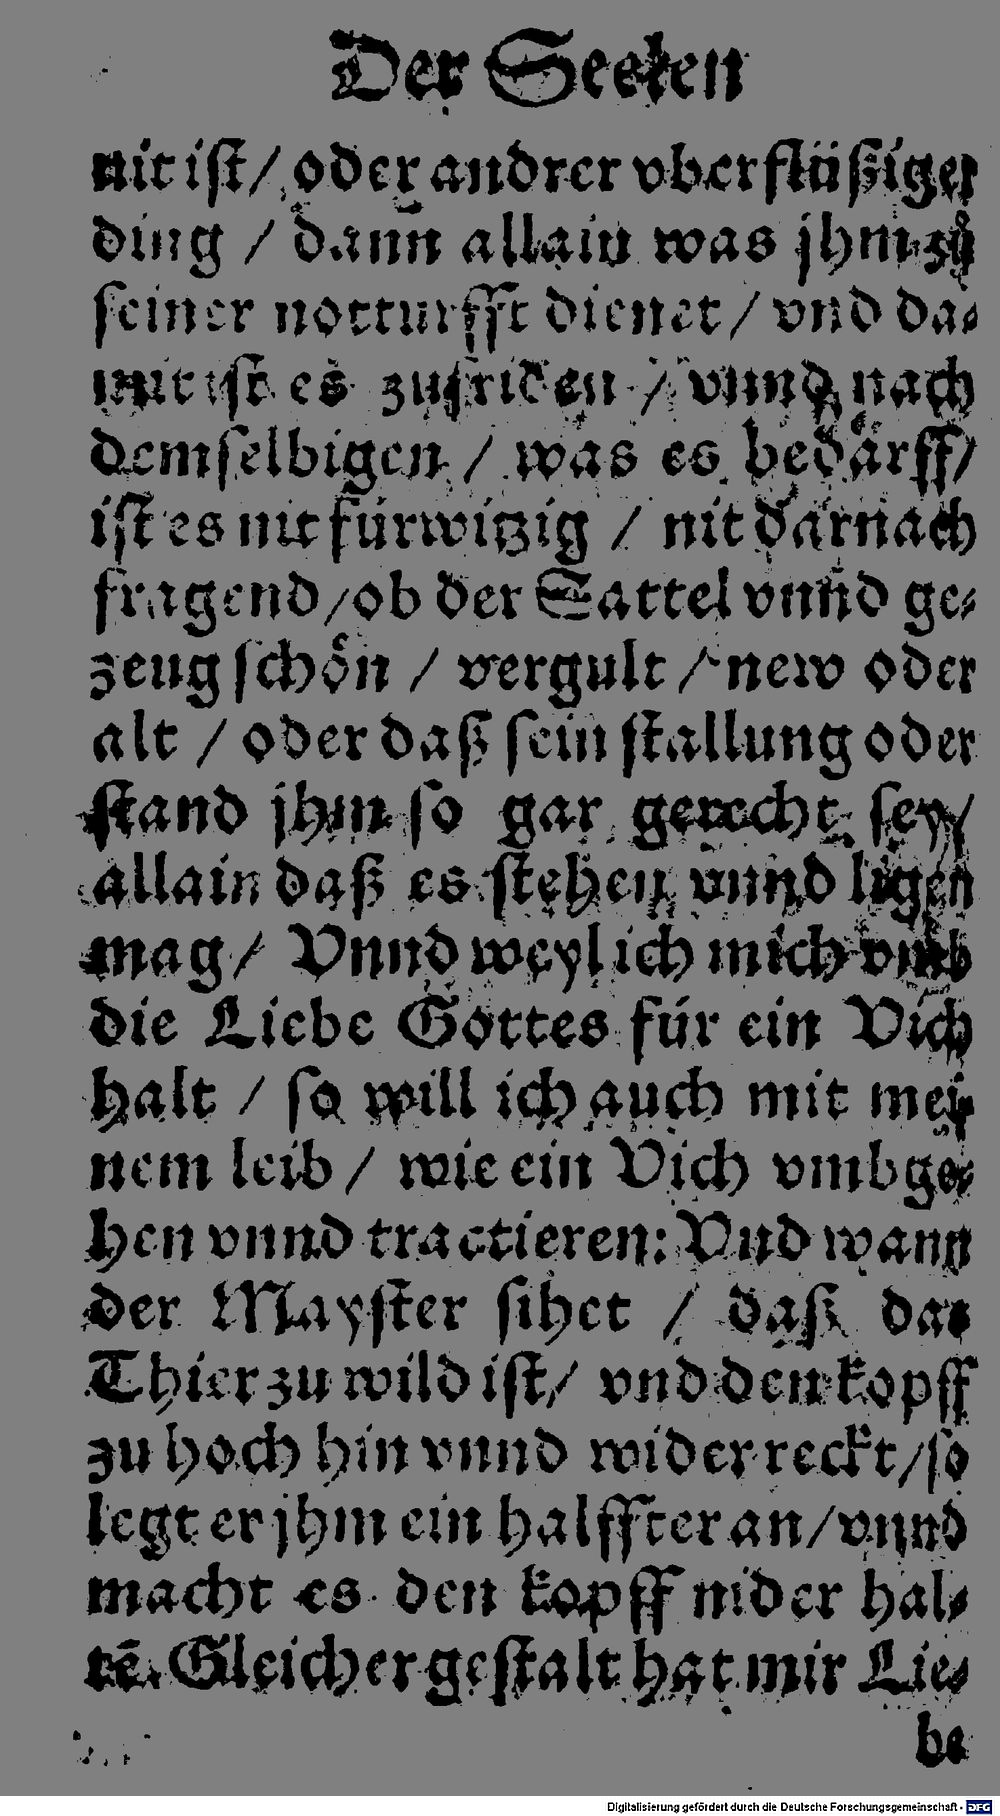 Der Seelen
nit ist/ oder andrer vberflüßiger
ding / dann allain was jhm zů
seiner notturfft dienet / vnd da⸗
mit ist es zufriden / vnnd nach
demselbigen / was es bedarff/
ist es nit fürwitzig / nit darnach
fragend/ob der Sattel vnnd ge⸗
zeug schoͤn / vergult / new oder
alt / oder daß sein stallung oder
stand jhm so gar gerecht sey/
allain daß es stehen vnnd ligen
mag/ Vnnd weyl ich mich vmb
die Liebe Gottes für ein Vich
halt / so will ich auch mit mei
nem leib / wie ein Vich vmbge⸗
hen vnnd tractieren: Vnd wann
der Mayster sihet / daß das
Thier zu wild ist/ vnd den kopff
zu hoch hin vnnd wider reckt/so
legt er jhm ein halffter an/vnnd
macht es den kopff nider hal⸗
tē. Gleicher gestalt hat mir Lie⸗
be
Digitalisierung gefördert durch die Deutsche Forschungsgemeinschaft - DFG